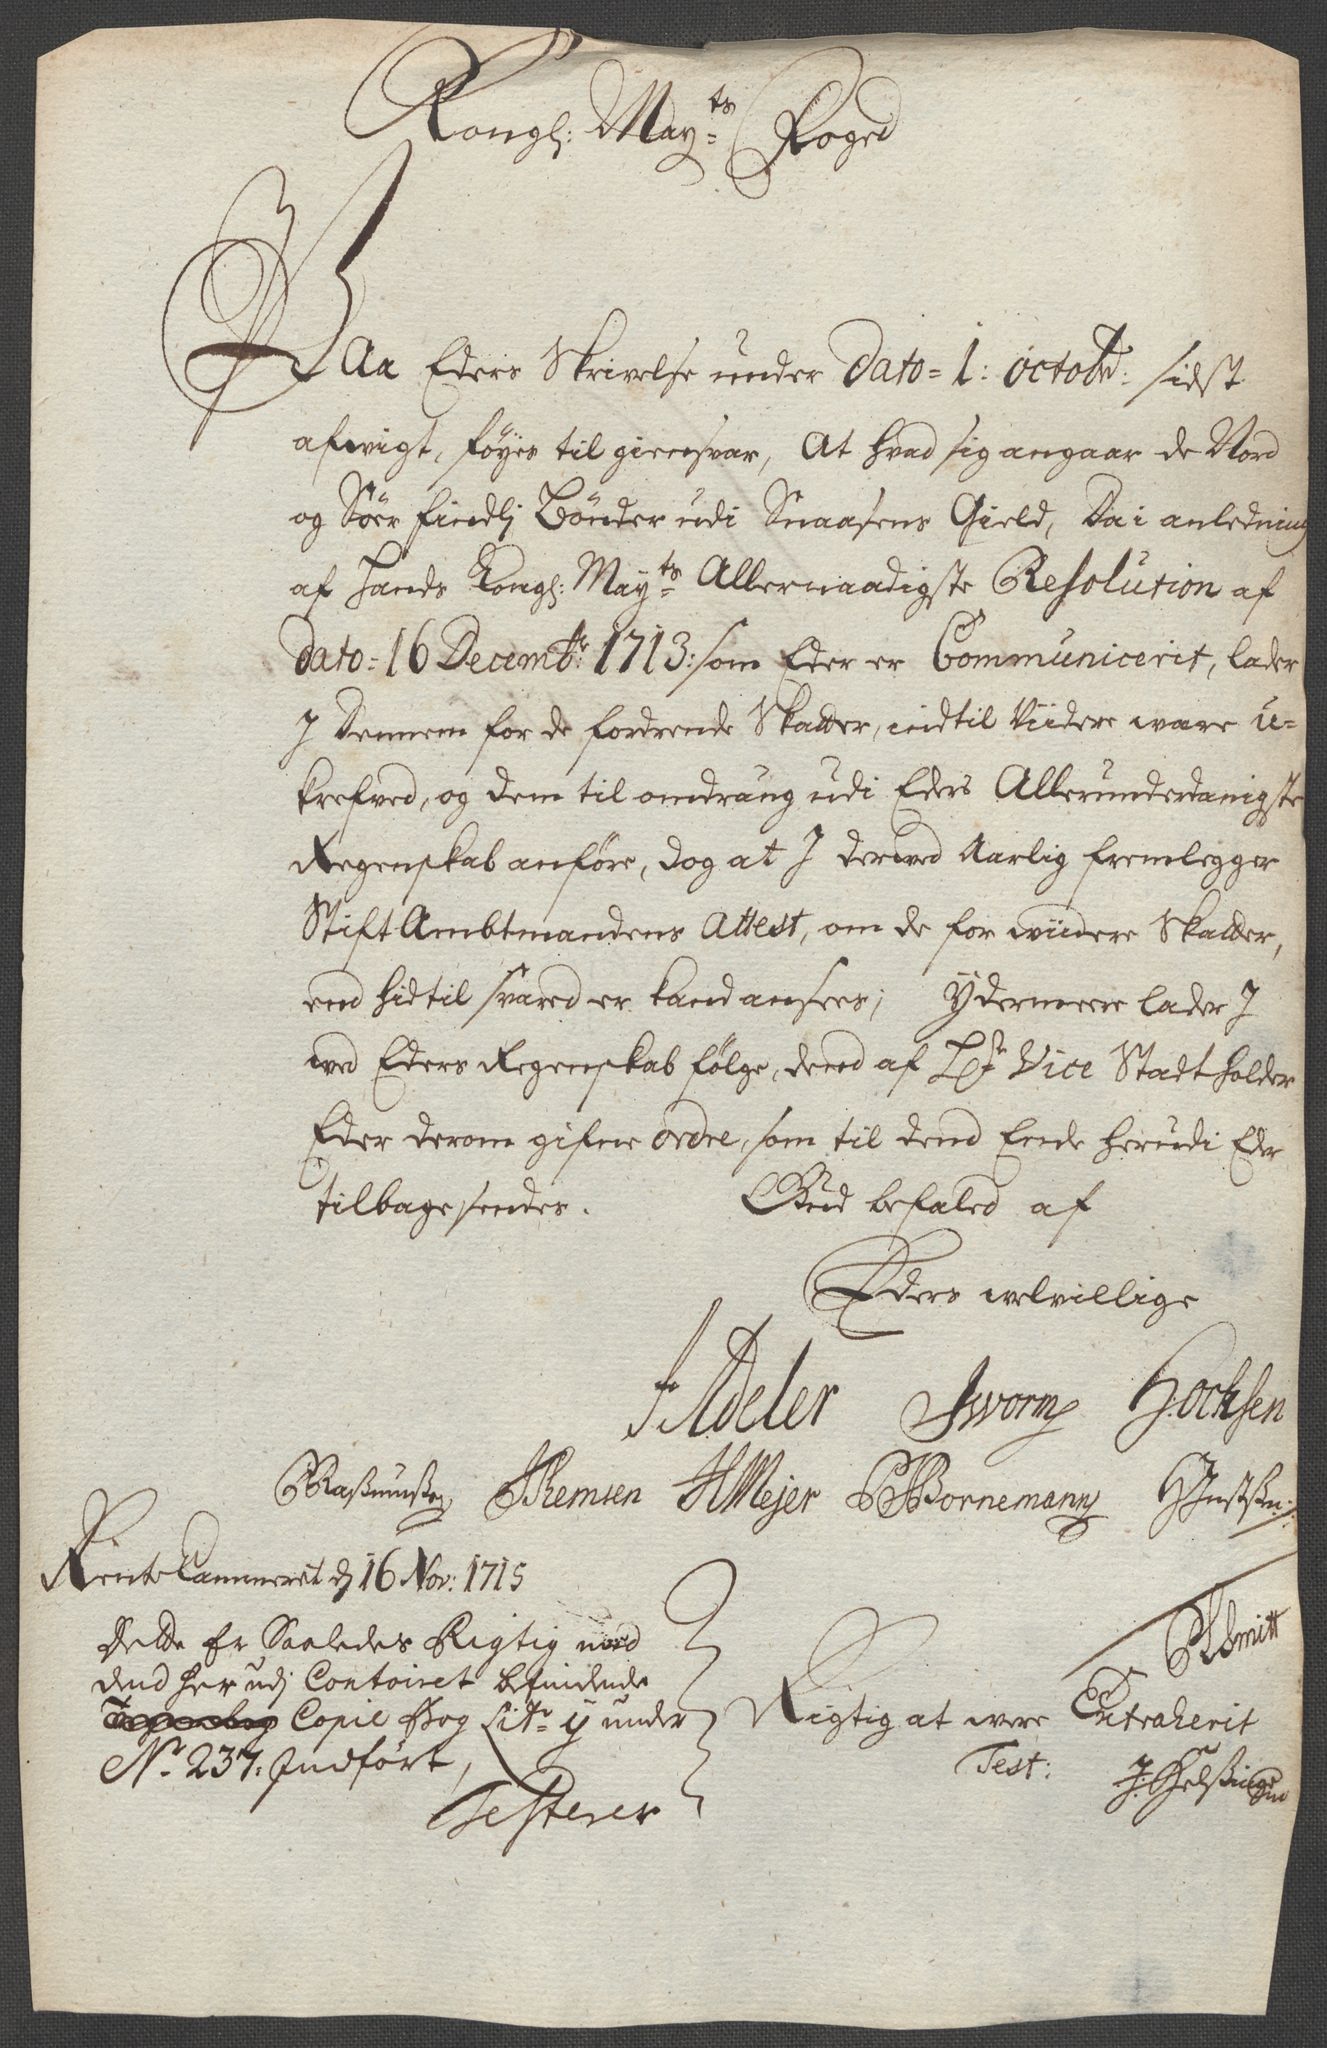 Kongl: May:ts Foged
Paa Eders Skrivelse under Dato = 1: octobr: sidst
afvigt, føyes til giensvar, At hvad sig angaar de Nord
og Søer findlj Bønder udi Snaasens Gield, Da i anledning
af Hands Kongl: May:ts Allernaadigste Resolution af
Dato = 16 Decembr: 1713: som Eder er Communicerit, lader
I Dennem for de fordrende Skatter, indtil Viidere være u-
krefved, og dem til omdrang udi Eders Allerunderdanigste
Regenskab anføre, dog at I derved Aarlig fremlegger
Stift Ambtmandens Attest, om de for viidere Skatter,
end hidtil svared er kand ansees; Ydermeere lader I
ved Eders Regenskab følge, dend af Hr: Vice Stadtholder
Eder derom gifne ordre, som til dend Ende herudi Eder
tilbage sendes. Gud befaled af
Eders velvillige
F Adeler J Worm H: ocksen
C Rasmussen T Remsen H Mejer P H Bornemann H Justsen:
Rente Cammeret d 16 Nov: 1715
P Schmitt
Dette Er Saaledes Rigtig med
dend her udj Contoiret befindende
Copie Bog Litr: y under
No. 237: Indført,
Testerer
Rigtig at were Extraherit
Test: J: Helsing